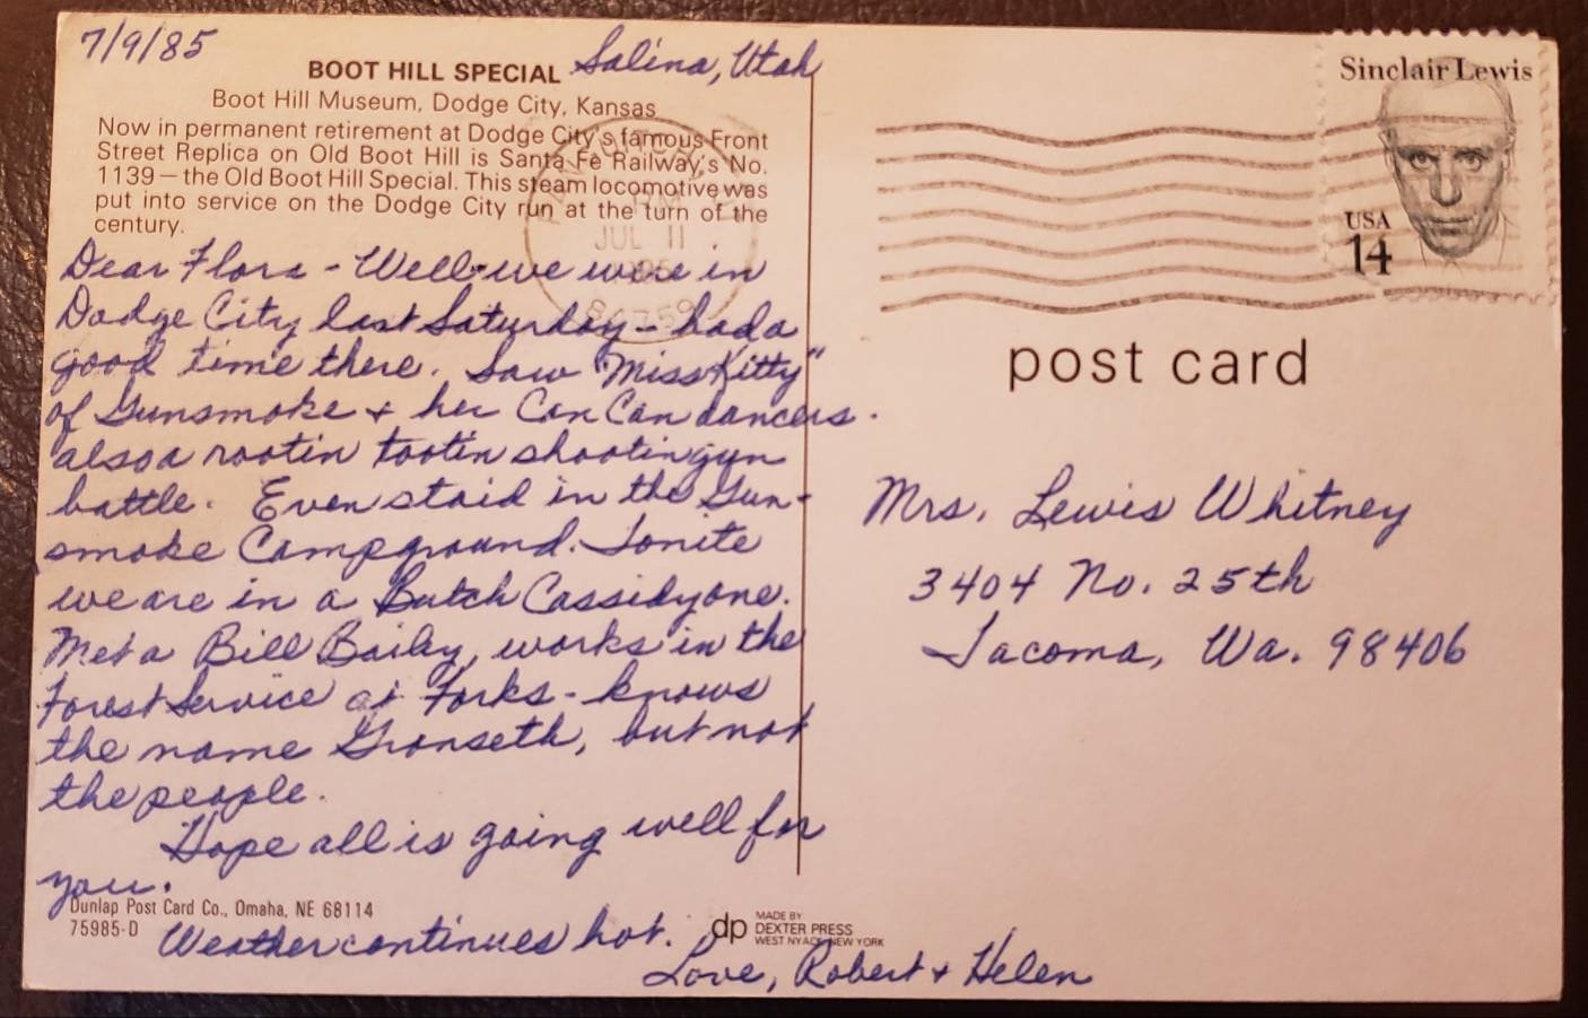 7/9/85
Salina, Utah
BOOT HILL SPECIAL
Boot Hill Museum, Dodge City, Kansas
Now in permanent retirement at Dodge City's famous Front
Street Replica on Old Boot Hill is Santa Fe Railway's No.
1139—the Old Boot Hill Special. This steam locomotive was
put into service on the Dodge City run at the turn of the
century.
Dear Flora - Well-we were in
Dodge City last Saturday - had a
good time there. Saw "Miss Kitty"
of Gunsmoke + her Can Can dancers.
also a rootin tootin shootin gun
battle. Even staid in the Gun-
smoke Campground. Tonite
we are in a Butch Cassidy one.
Met a Bill Bailey, works in the
Forest Service at Forks - knows
the name Gronseth, but not
the people.
Hope all is going well for
you.
Weather continues hot.
Love, Robert + Helen
Dunlap Post Card Co., Omaha, NE 68114
75985-D
dp
MADE BY
DEXTER PRESS
WEST NYACK, NEW YORK
JUL 11
Sinclair Lewis
USA
14
post card
Mrs. Lewis Whitney
3404 No. 25th
Tacoma, Wa. 98406